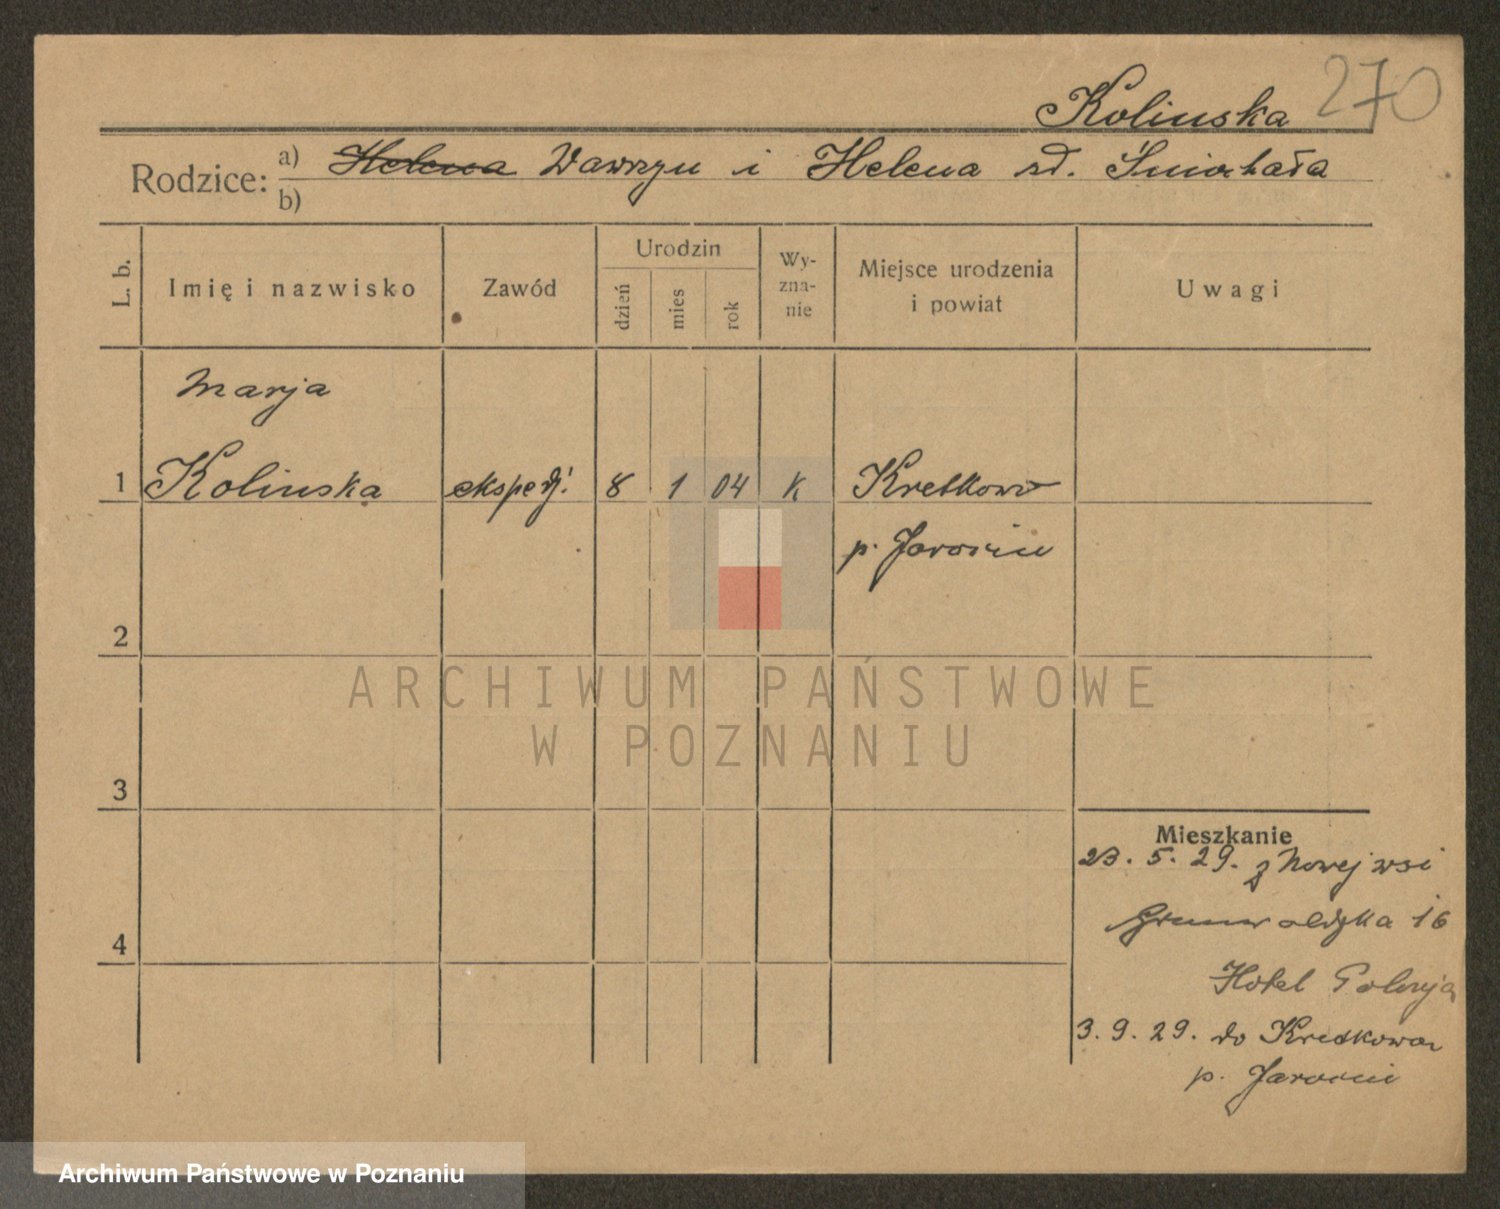 Kolinska 270
Rodzice: a) Helena Wawrzyn i Helena zd. Śmiahała
b)
L. b. Imię i nazwisko Zawód Urodzin dzień mies rok Wy-zna-nie Miejsce urodzenia i powiat Uwagi
Marja
1 Kolinska ekspedj. 8 1 04 k Kretkowo
p. Jarocin
2
ARCHIWUM PAŃSTWOWE
W POZNANIU
3
Mieszkanie
23. 5. 29. z Nowej wsi
Grunwaldzka 16
4
Hotel Polonja
3. 9. 29. do Kredkowa
p. Jarocin
Archiwum Państwowe w Poznaniu